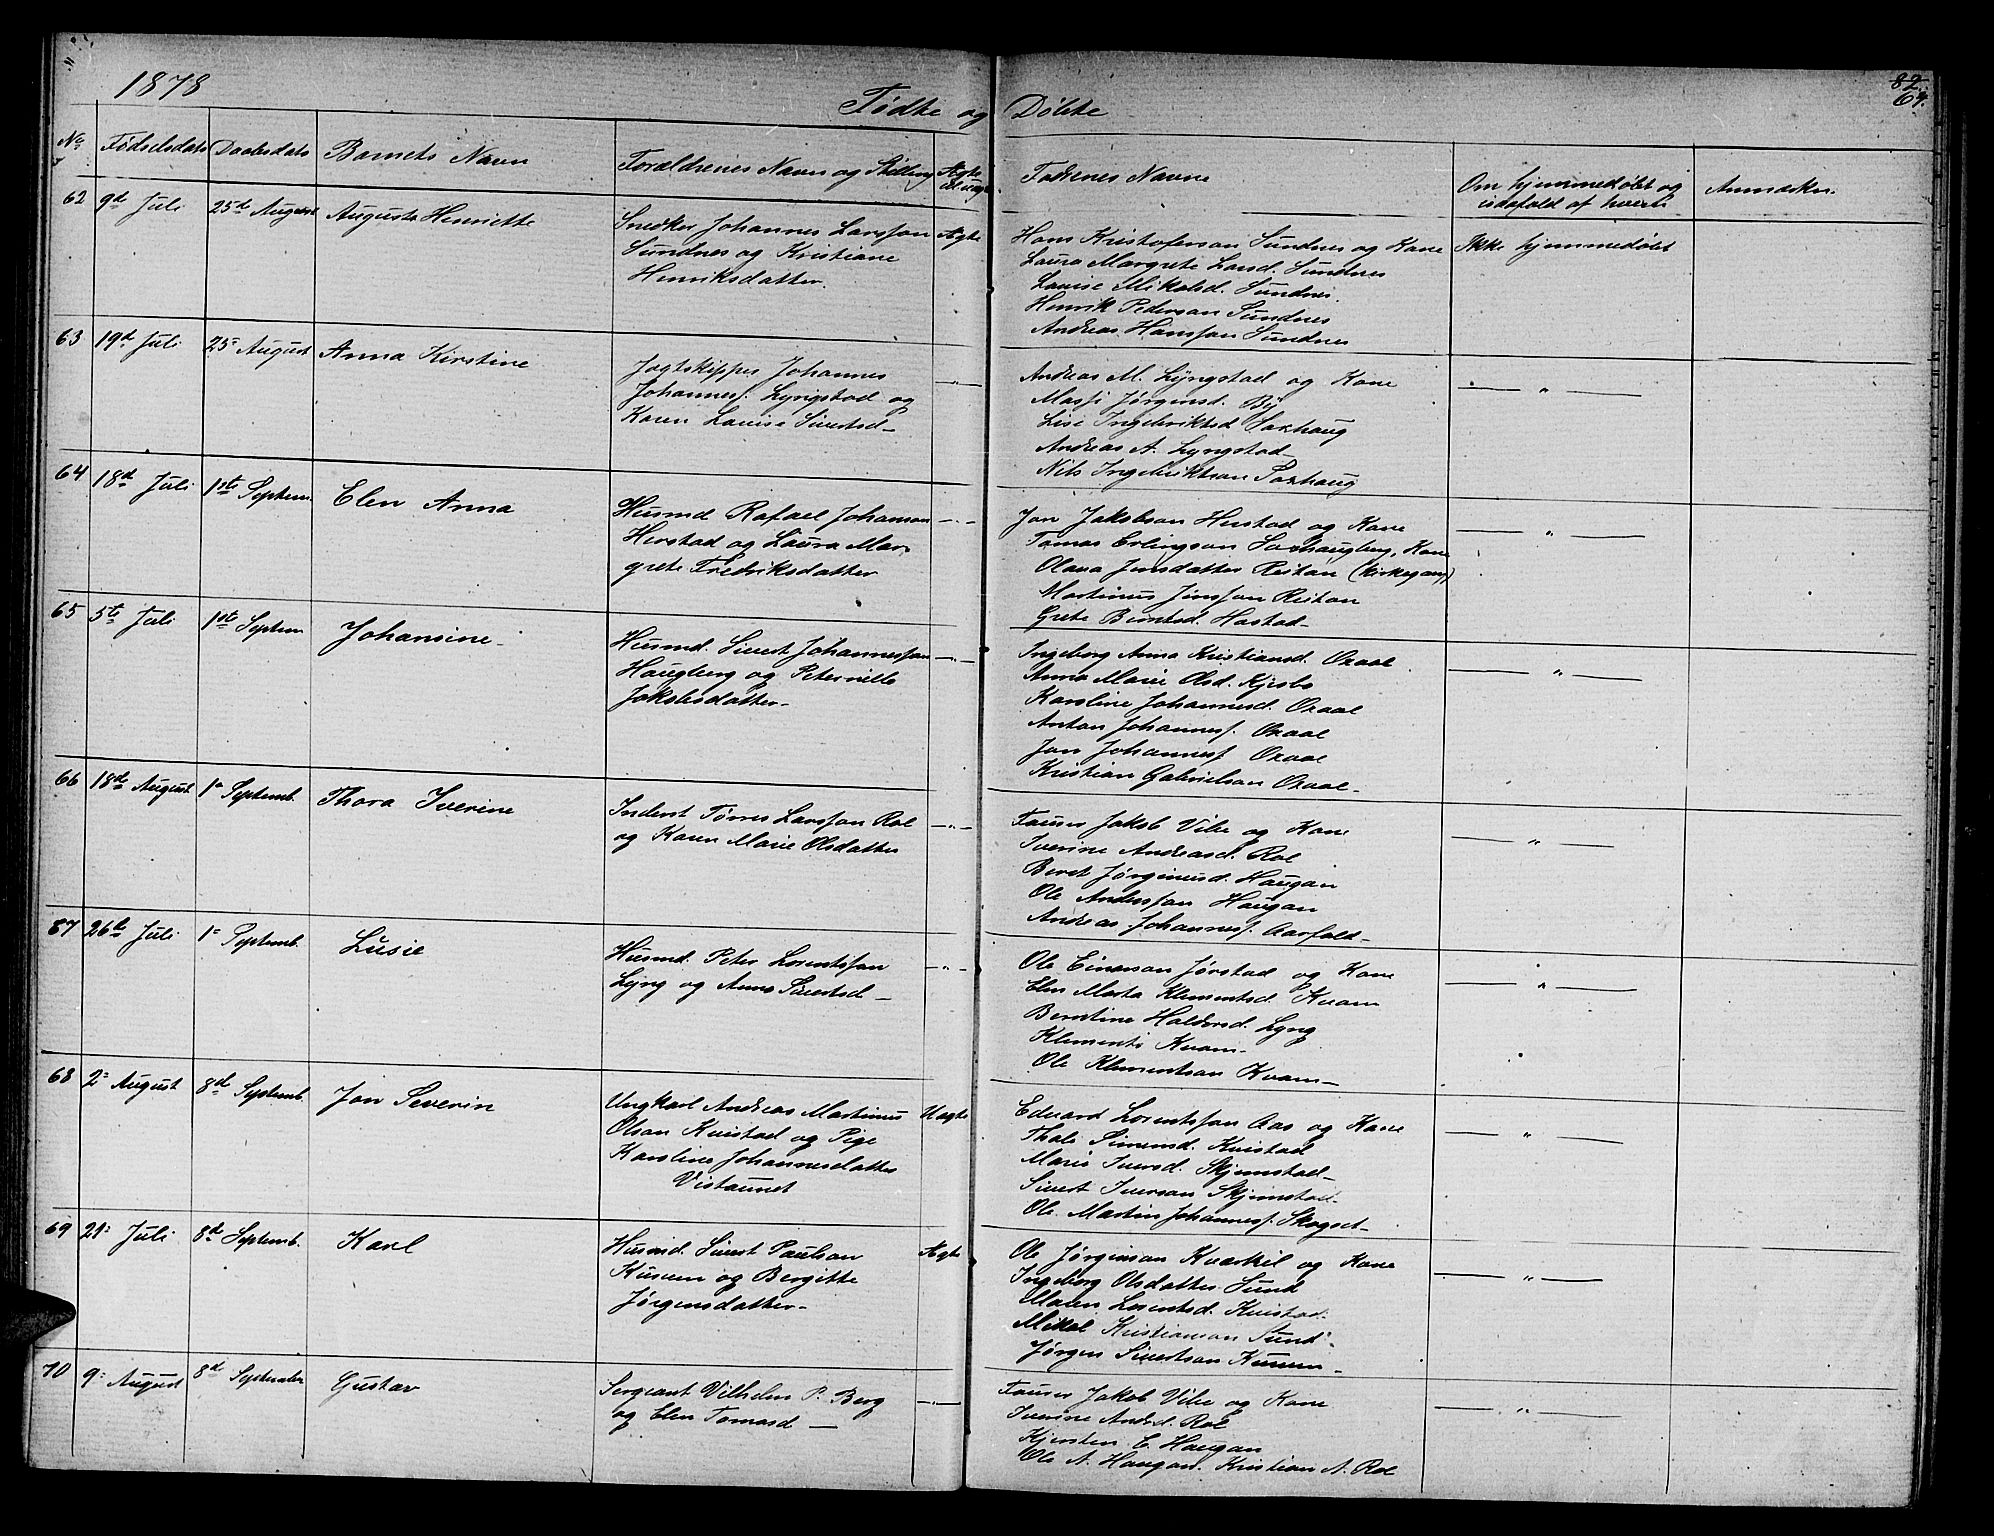 1878
82
64.
Fødte og Døbte
No Fødselsdato Daabsdato Barnets Navn Forældrenes Navn og Stilling Ægte el. uægte Faddernes Navne Om hjemmedøbt og isåfald af hvem Anmærkn.
62 9d Juli 25d August Auguste Henriette
Snedker Johannes Larsson
Sundnes og Kristiane
Henriksdatter.
Ægte
Hans Kristoferson Sundnes og Kone
Laura Margrete Larsd. Sundnes
Lauise Mikalsd. Sundnes.
Henrik Pederson Sundnes
Andreas Hansson Sundnes
Ikke hjemmedøbt
63 19d Juli 25d August Anna Kirstine
Jagtskipper Johannes
Johannesf. Lyngstad og
Karen Lauise Sivertsd-
—"—
Andreas M. Lyngstad og Kone
Massi Jørgensd. By
Lise Ingebriktsd Saxhaug
Andreas A. Lyngstad
Nils Ingebriktson Saxhaug
—"—
64 18d Juli 1ste Septem. Elen Anna
Husmd Rafael Johanson
Herstad og Laura Mar-
grete Fredriksdatter
—"—
Jon Jakobson Herstad og Kone
Tomas Erlingson Saxhaugberg, Kone
Olava Jensdatter Reitan (Kirkegang)
Martinus Jensson Reitan
Grete Berntsd. Hastad-
—"—
65 5te Juli 1ste Septem Johansine-
Husmd. Sivert Johannesson
Haugberg og Peternille
Jakobsdatter-
—"—
Ingeborg Anna Kristiansd. Oxaal
Anna Marie Olsd. Kjesbo
Karoline Johannesd. Oxaal
Anton Johannesf. Oxaal
Jon Johannesf Oxaal
Kristian Gabrielson Oxaal-
—"—
66 18de August 1e Septemb. Thora Iverine
Inderst Tørres Larsson Rol
og Karen Marie Olsdatter
—"—
Fourer Jakob Vibe og Kone
Iverine Andreasd. Rol
Beret Jørginesd. Haugan
Ole Andersson Haugan
Andreas Johannesf. Aasfald-
—"—
67 26de Juli 1e Septemb. Lusie
Husmd. Peter Lorentsson
Lyng og Anna Sivertsd-
—"—
Ole Einarson Jørstad og Kone
Elen Marta Klementsd. Kvam
Berntine Haldorsd. Lyng
Klement Kvam-
Ole Klementson Kvam-
—"—
68 2e August 8d Septemb. Jon Severin
Ungkarl Andreas Martinus
Olson Kvistad og Pige
Karoline Johannesdatter
Vistaunet
Uægte
Edvard Lorentsson Aas og Kone
Thale Simonsd. Kvistad
Marie Iversd. Skjemstad-
Sivert Iverson Skjemstad-
Ole Martin Johannesf. Skogset-
—"—
69 21e Juli 8de Septemb. Karl
Husmd. Sivert Paulson
Kusem og Bergitte
Jørgensdatter-
Ægte
Ole Jørginson Kvarkil og Kone
Ingeborg Olsdatter Sund
Maren Lorentsd. Kvistad.
Mikal Kristianson Sund
Jørgen Sivertson Kusem-
—"—
70 9e August 8d September Gustav
Sergeant Vilhelm P. Berg
og Elen Tomasd-
—"—
Fourer Jakob Vibe og Kone
Iverine Andsd. Rol
Kjersten E. Haugan
Ole A. Haugan. Kristian A. Rol
—"—